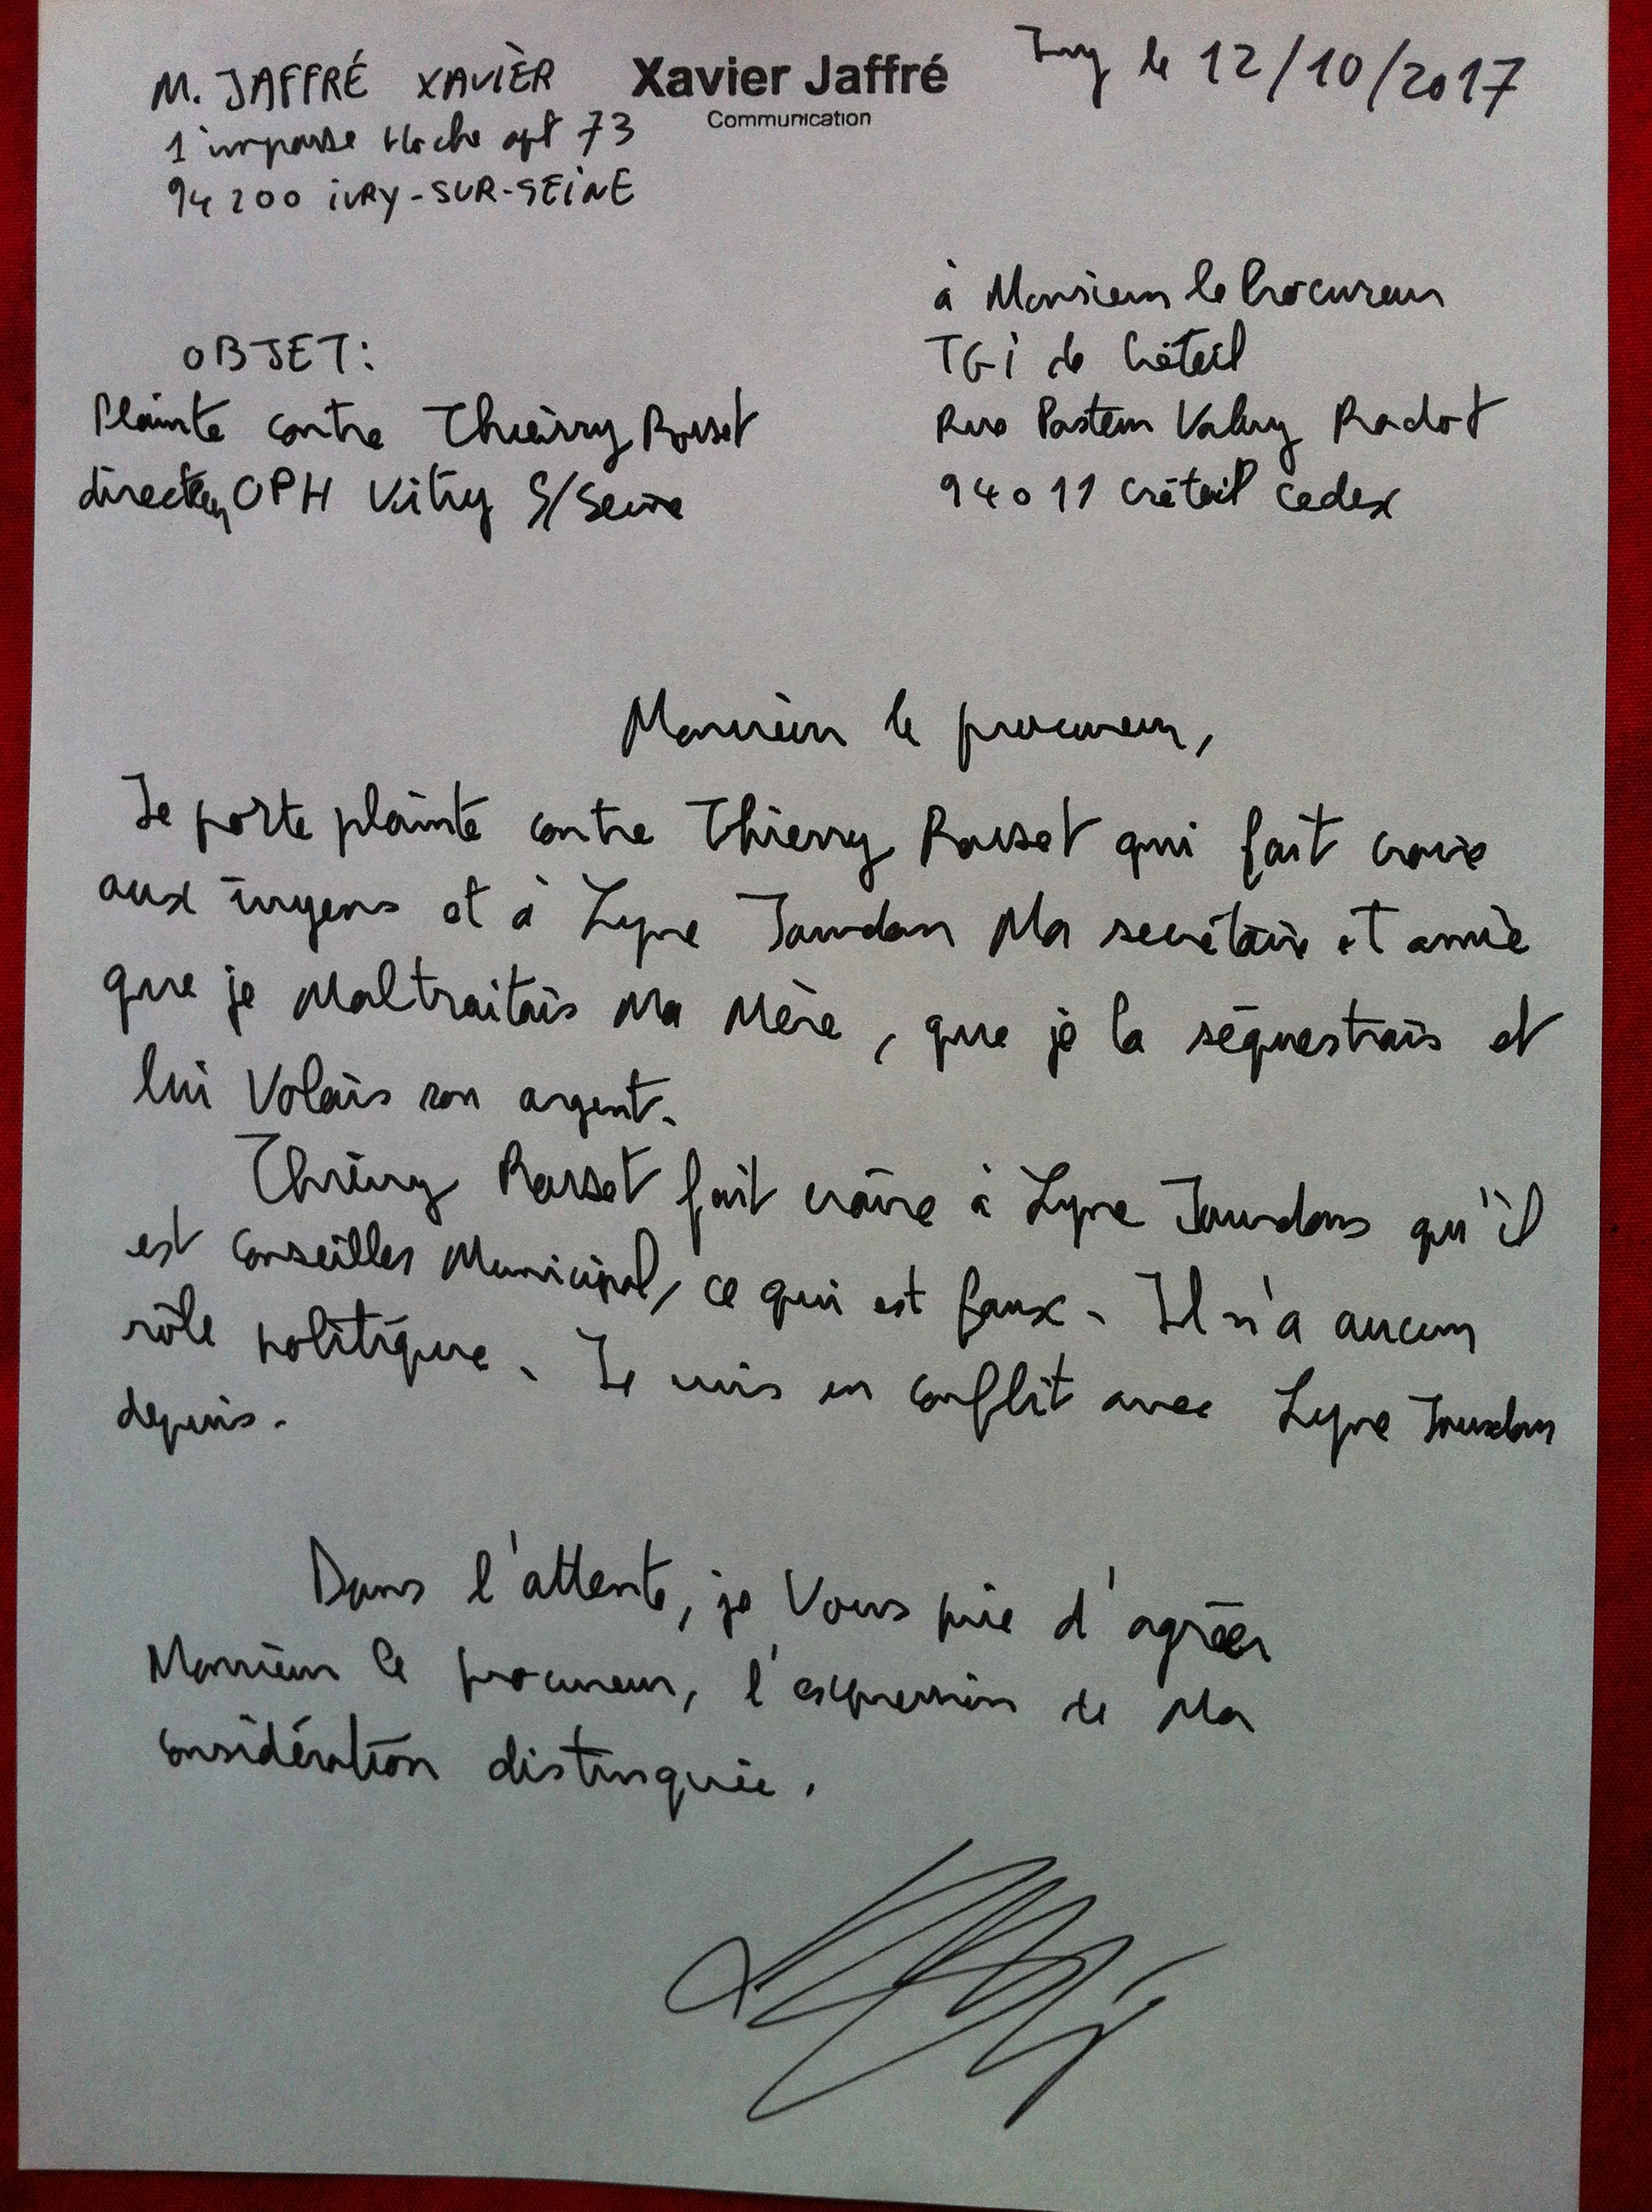 M. JAFFRÉ XAVIER
Xavier Jaffré
Communication
Ivry le 12/10/2017
1 impasse Hoche apt 73
94200 IVRY-SUR-SEINE
à Monsieur le Procureur
TGI de Créteil
Rue Pasteur Valery Radot
94011 Créteil cedex
OBJET:
Plainte contre Thierry Rosset
directeur OPH Vitry S/Seine
Monsieur le procureur,
Je porte plainte contre Thierry Rosset qui fait croire
aux ivryens et à Lyne Jourdan Ma secrétaire et amie
que je Maltraitais Ma Mère, que je la séquestrais et
lui Volais son argent.
Thierry Rosset fait croire à Lyne Jourdan qu'il
est Conseiller Municipal, ce qui est faux. Il n'a aucun
rôle politique. Je suis en conflit avec Lyne Jourdan
depuis.
Dans l'attente, je Vous prie d'agréer
Monsieur le procureur, l'expression de Ma
considération distinguée.